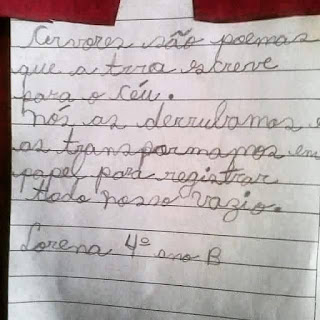 Árvores são poemas
que a trra escreve
para o céu.
Nós as derrubamos e
as transformamos em
papel para registrar
todo nosso vazio.
Lorena 4º ano B